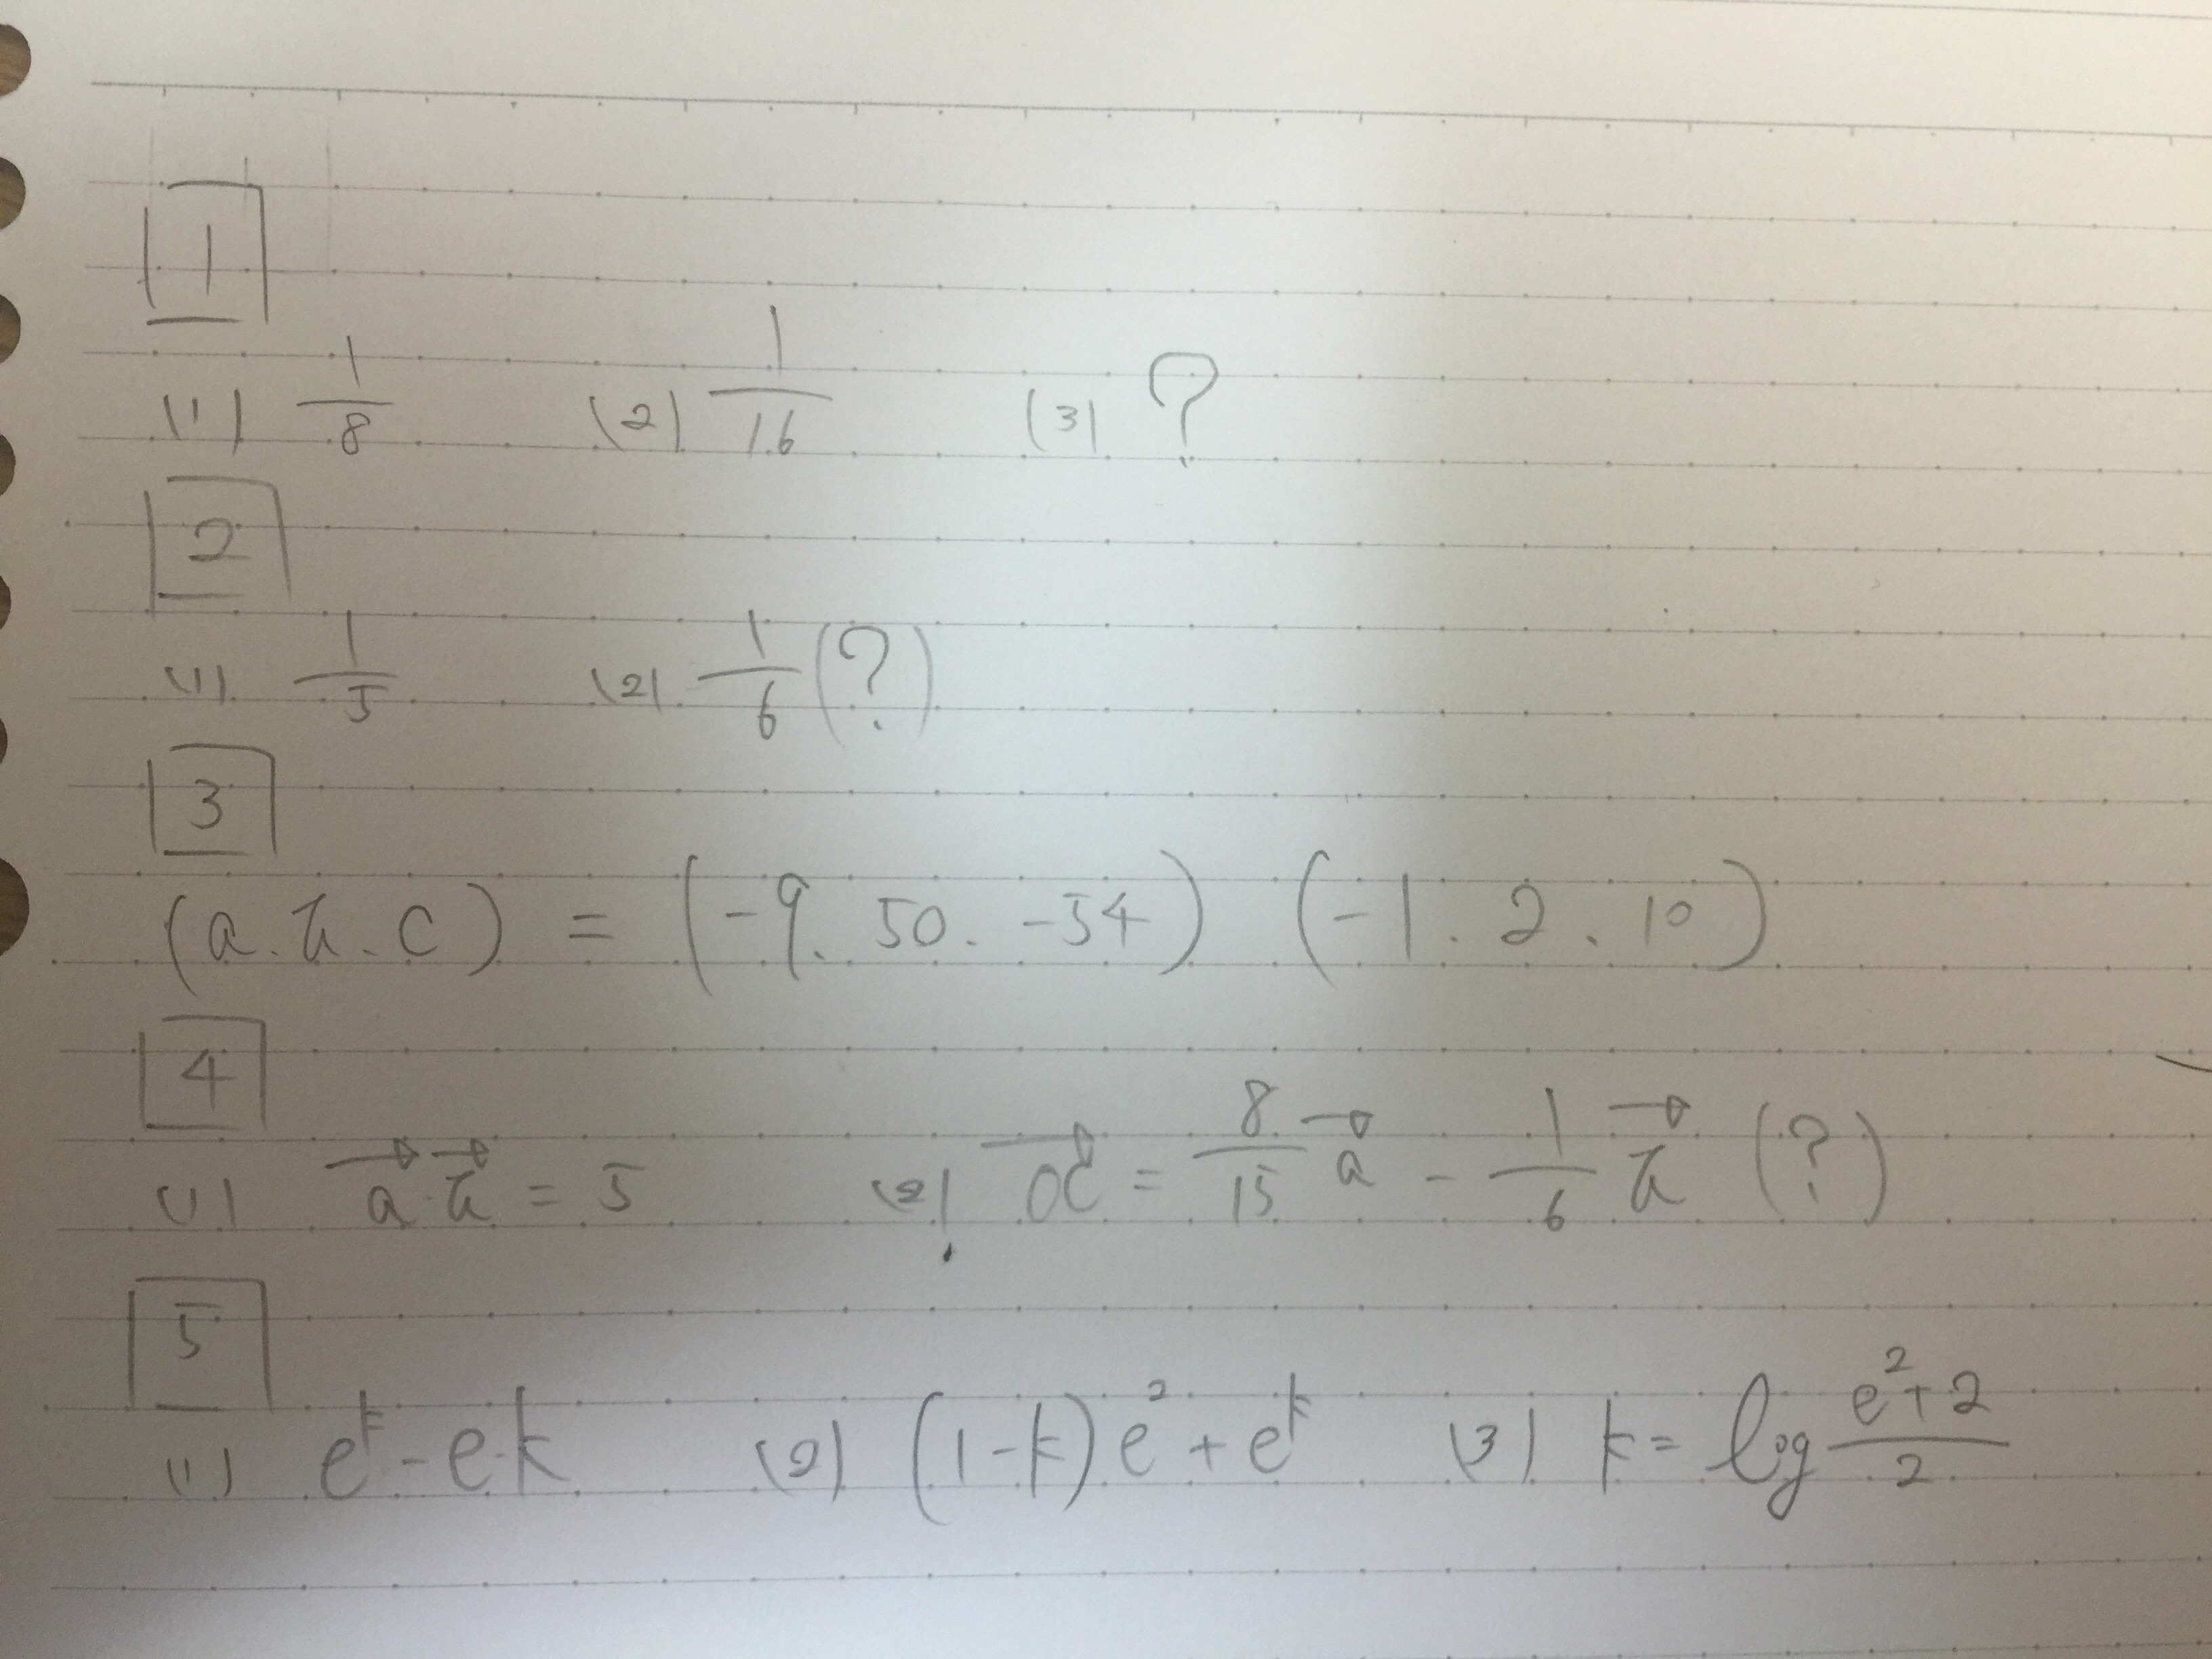 1
(1) 1/8 (2) 1/16 (3) ?
2
(1) 1/5 (2) 1/6 (?)
3
(a.b.c) = (-9.50.-54) (-1.2.10)
4
(1) a⃗·b⃗ = 5 (2) OC⃗ = 8/15 a⃗ - 1/6 b⃗ (?)
5
(1) e^k - ek (2) (1-k)e² + e^k (3) k = log (e²+2)/2